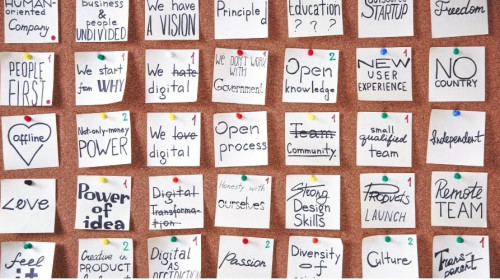 HUMAN-
oriented
Company.
business &
people
UNDIVIDED
We have
A VISION
Principled
Education
? ? ?
STARTUP
Freedom
PEOPLE
FIRST.
1
We start
from WHY
1
We hate
digital
We DON'T WORK
WITH
Government
2
Open
knowledge
NEW
USER
EXPERIENCE
NO
COUNTRY
offline
2
Not-only-money
POWER
1
We love
digital
1
Open
process
Team
Community.
1
small
qualified
team
Independent
Love
1
Power of
idea
1
Digital
Transforma-
tion
Honesty with
ourselves
Strong
Design
Skills
1
Products
LAUNCH
2
Remote
TEAM
feel
it
2
Creative in
PRODUCT
1
Digital
AS
2
Passion
Diversity
of
2
Culture
1
Trans
parent